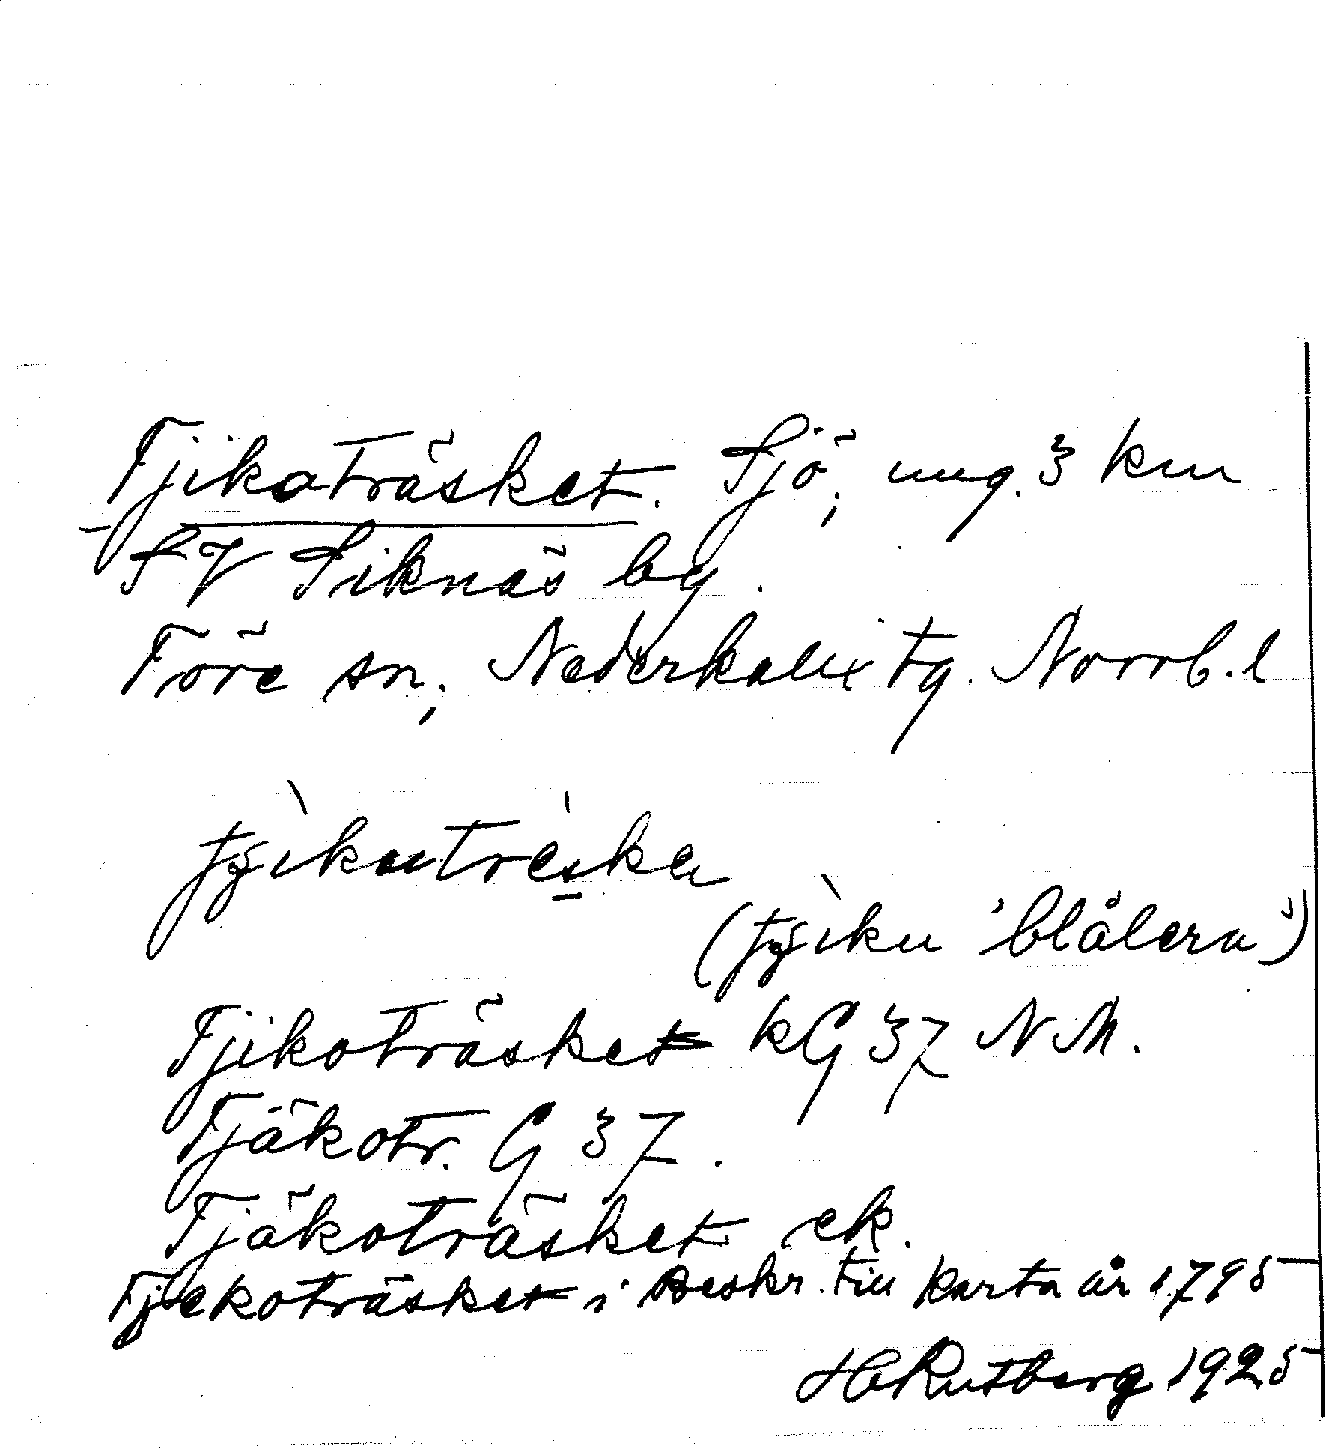 Tjikoträsket. Sjö, ung. 3 km
SV Siknäs by.
Töre sn, Nederkalix tg. Norrb. l
(tjiku 'blålera')
Tjikoträsket kG 37 NM.
Tjäkotr. G 37.
Tjäkoträsket ek.
Tjekoträsket i Beskr. till karta år 1795
H Rutberg 1925